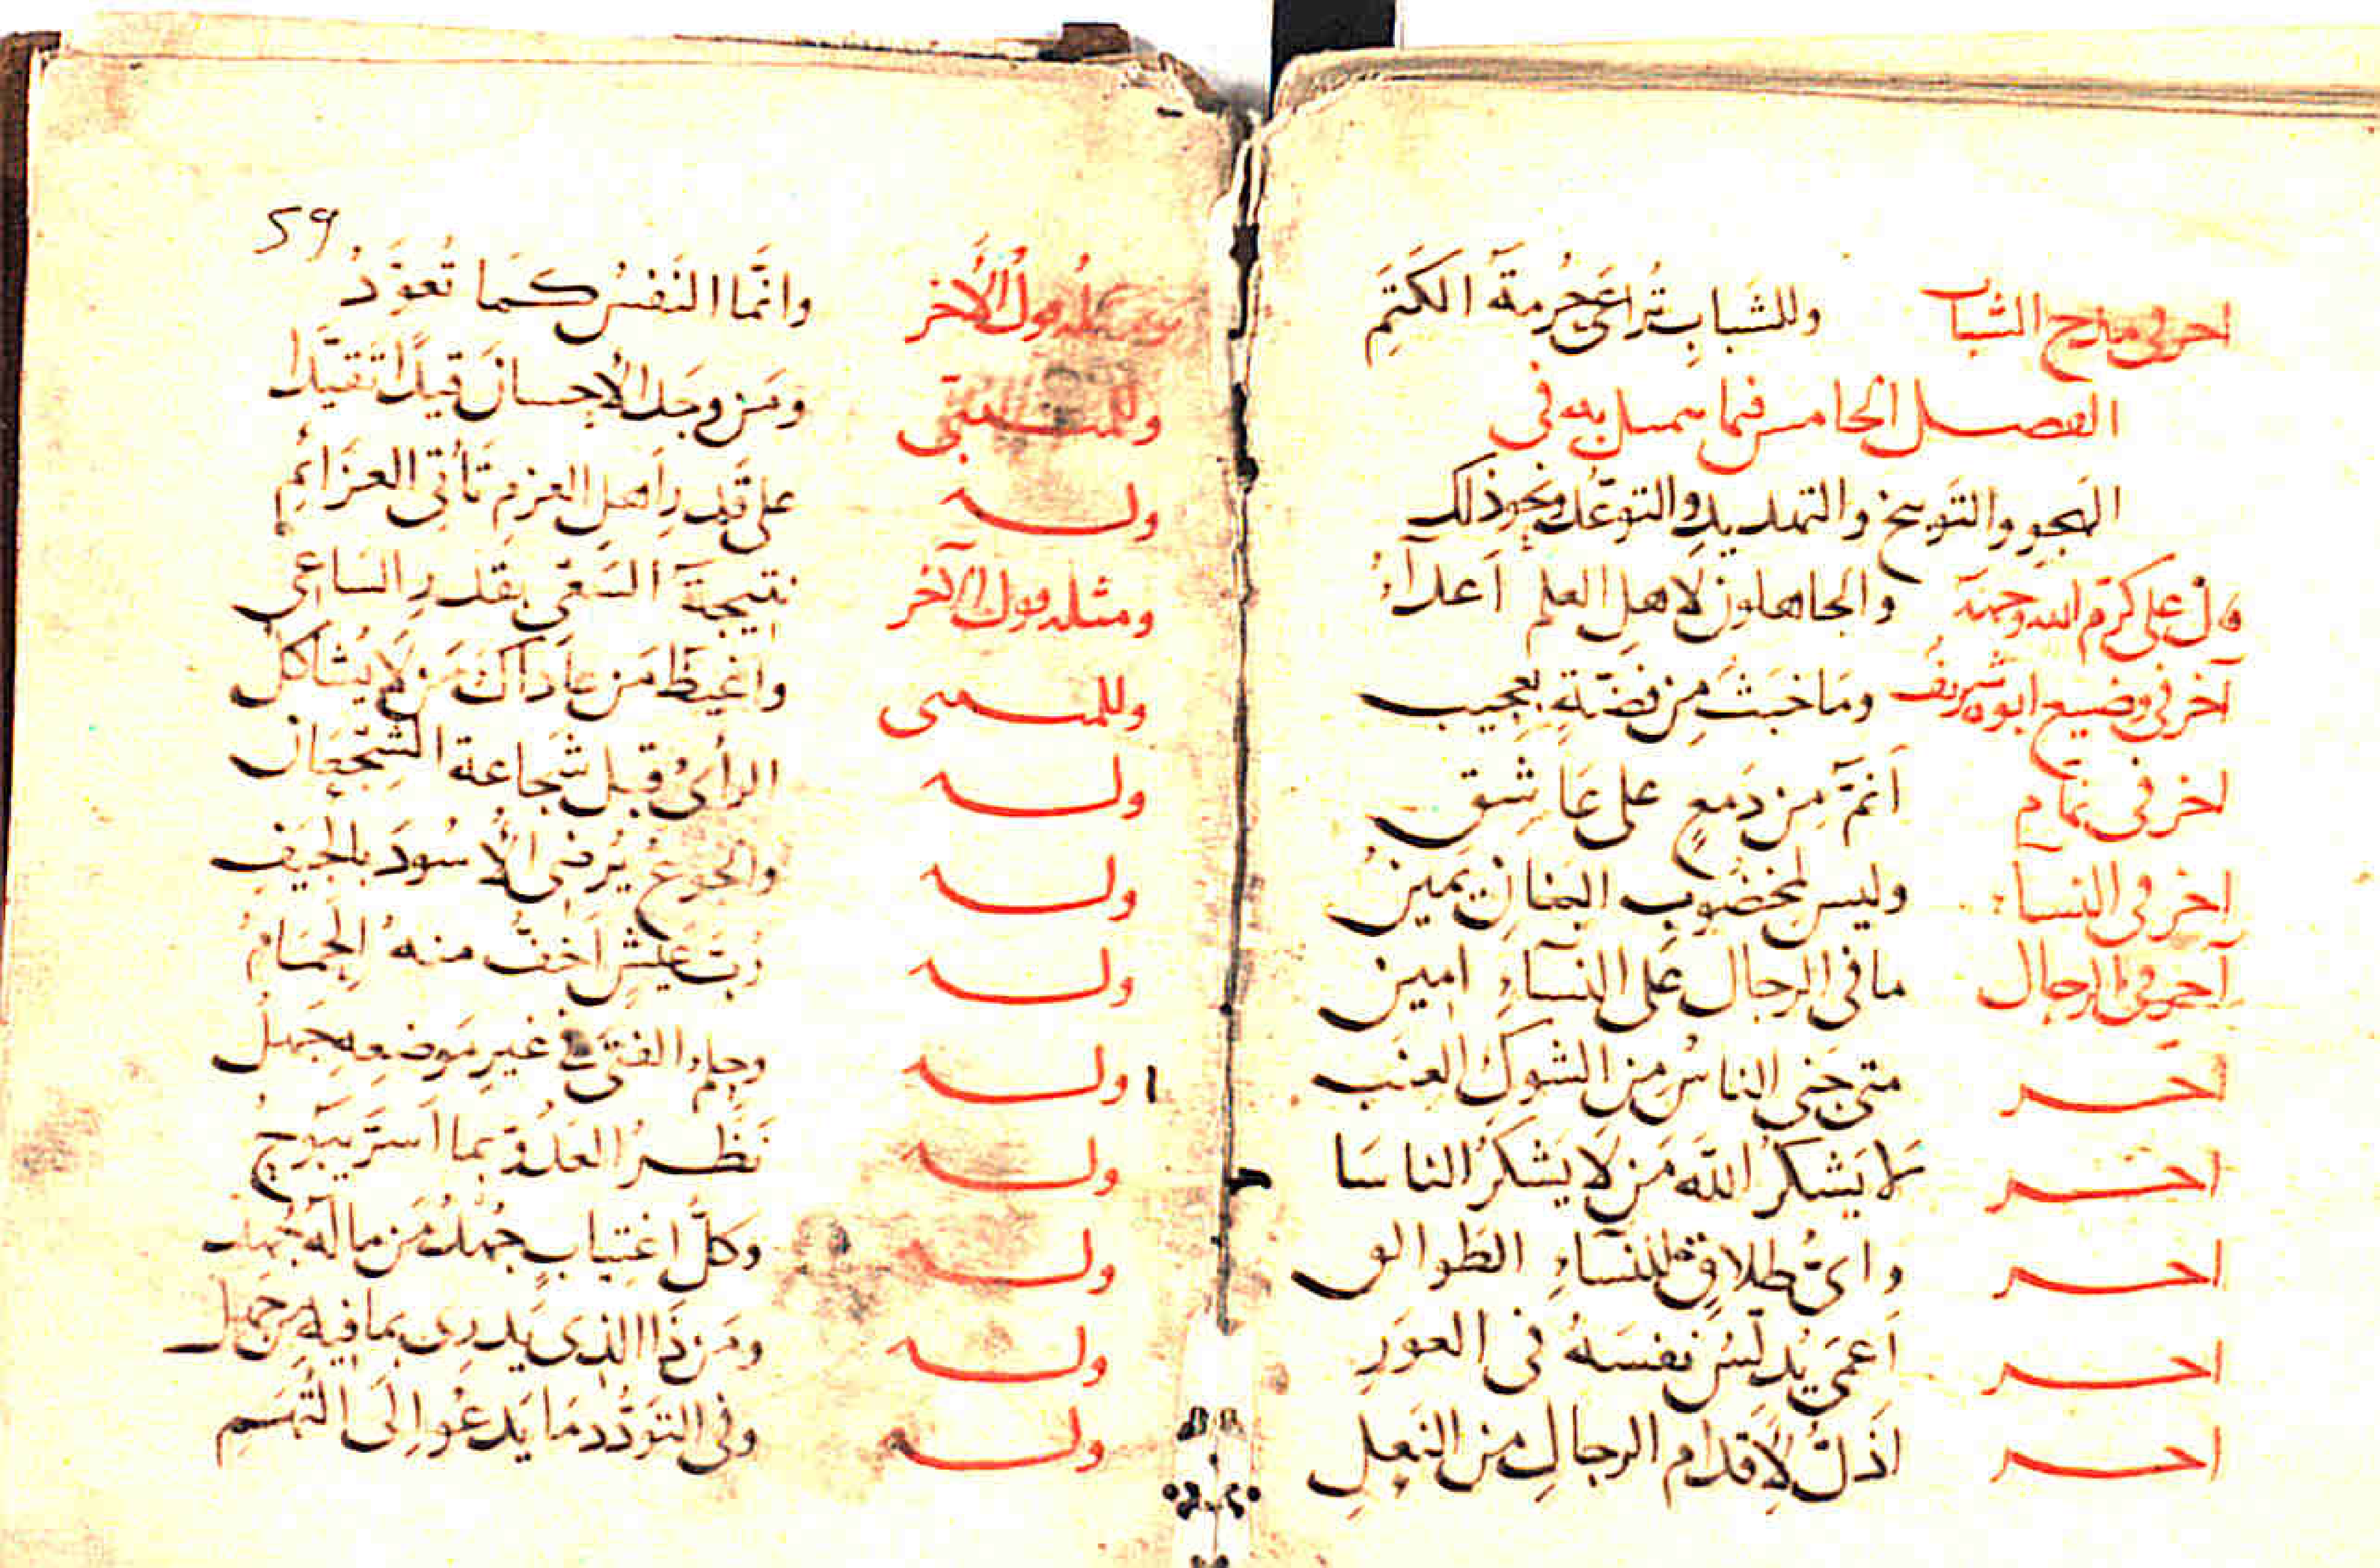 اخر فى مدح الشباب وللشَبابِ تُراعَى حُرمةُ الكَتَمِ
الفصل الخامس فيما يتمثل به فى
الهجو والتوبيخ والتهديد والتوعّد ونحو ذلك
قال على كرّم الله وجهه والجاهلون لاهل العلم اَعداءُ
آخر فى وضيع ابوه شريف ومَا خَبَثٌ مِن فضّةٍ بعجيب
اخر فى نمّام اَنمّ مِن دَمعٍ على عَاشِق
اخر فى النساء وليس لمخضوب البنان يمينُ
آخر فى الرجال ما فى الرجال على النساءِ امين
اخر متى جَنى الناسُ مِن الشوك العِنَب
اخر لا يَشكرُ اللهَ مَن لا يَشكرُ الناسَا
اخر واىُّ طلاقٍ للنساءِ الطوالق
اخر اَعمَى يُدلّسُ نفسَهُ فى العوَرِ
اخر اَذَلُّ لِاَقدامِ الرجالِ من النعلِ
59
ومثله قول الآخر وانَّما النَفسُ كمَا تُعوَّدُ
وللمتنبّى ومَن وجَد الاحسانَ قيدًا تَقيَّدا
وله على قَدرِ اَهلِ العَزمِ تَأتى العزَائمُ
ومثله قول الآخر نتيجةُ السَعىِ بقدرِ الساعى
وللمتنبى واغيَظُ مَن عادَاكَ مَن لا يُشاكلُ
وله الرأىُ قبل شَجاعة الشُجعَان
وله والجوعُ يُرضِى الاُسُودَ بالجِيَفِ
وله رُبَّ عَيشٍ اَخفُّ منهُ الحِمَامُ
وله وحِلمُ الفتَى فى غيرِ مَوضعِه جَهلُ
وله نَظَرُ العَدُوّ بما اَسَرَّ يَبُوحُ
وله وكلُّ اغتيابٍ جُهدُ مَن مالَهُ جُهد
وله ومَن ذَا الذى يَدرى بمَا فيهِ مِن جَهل
وله وفى التَودُّدِ مَا يَدعُوا اِلَى التُّهَمِ